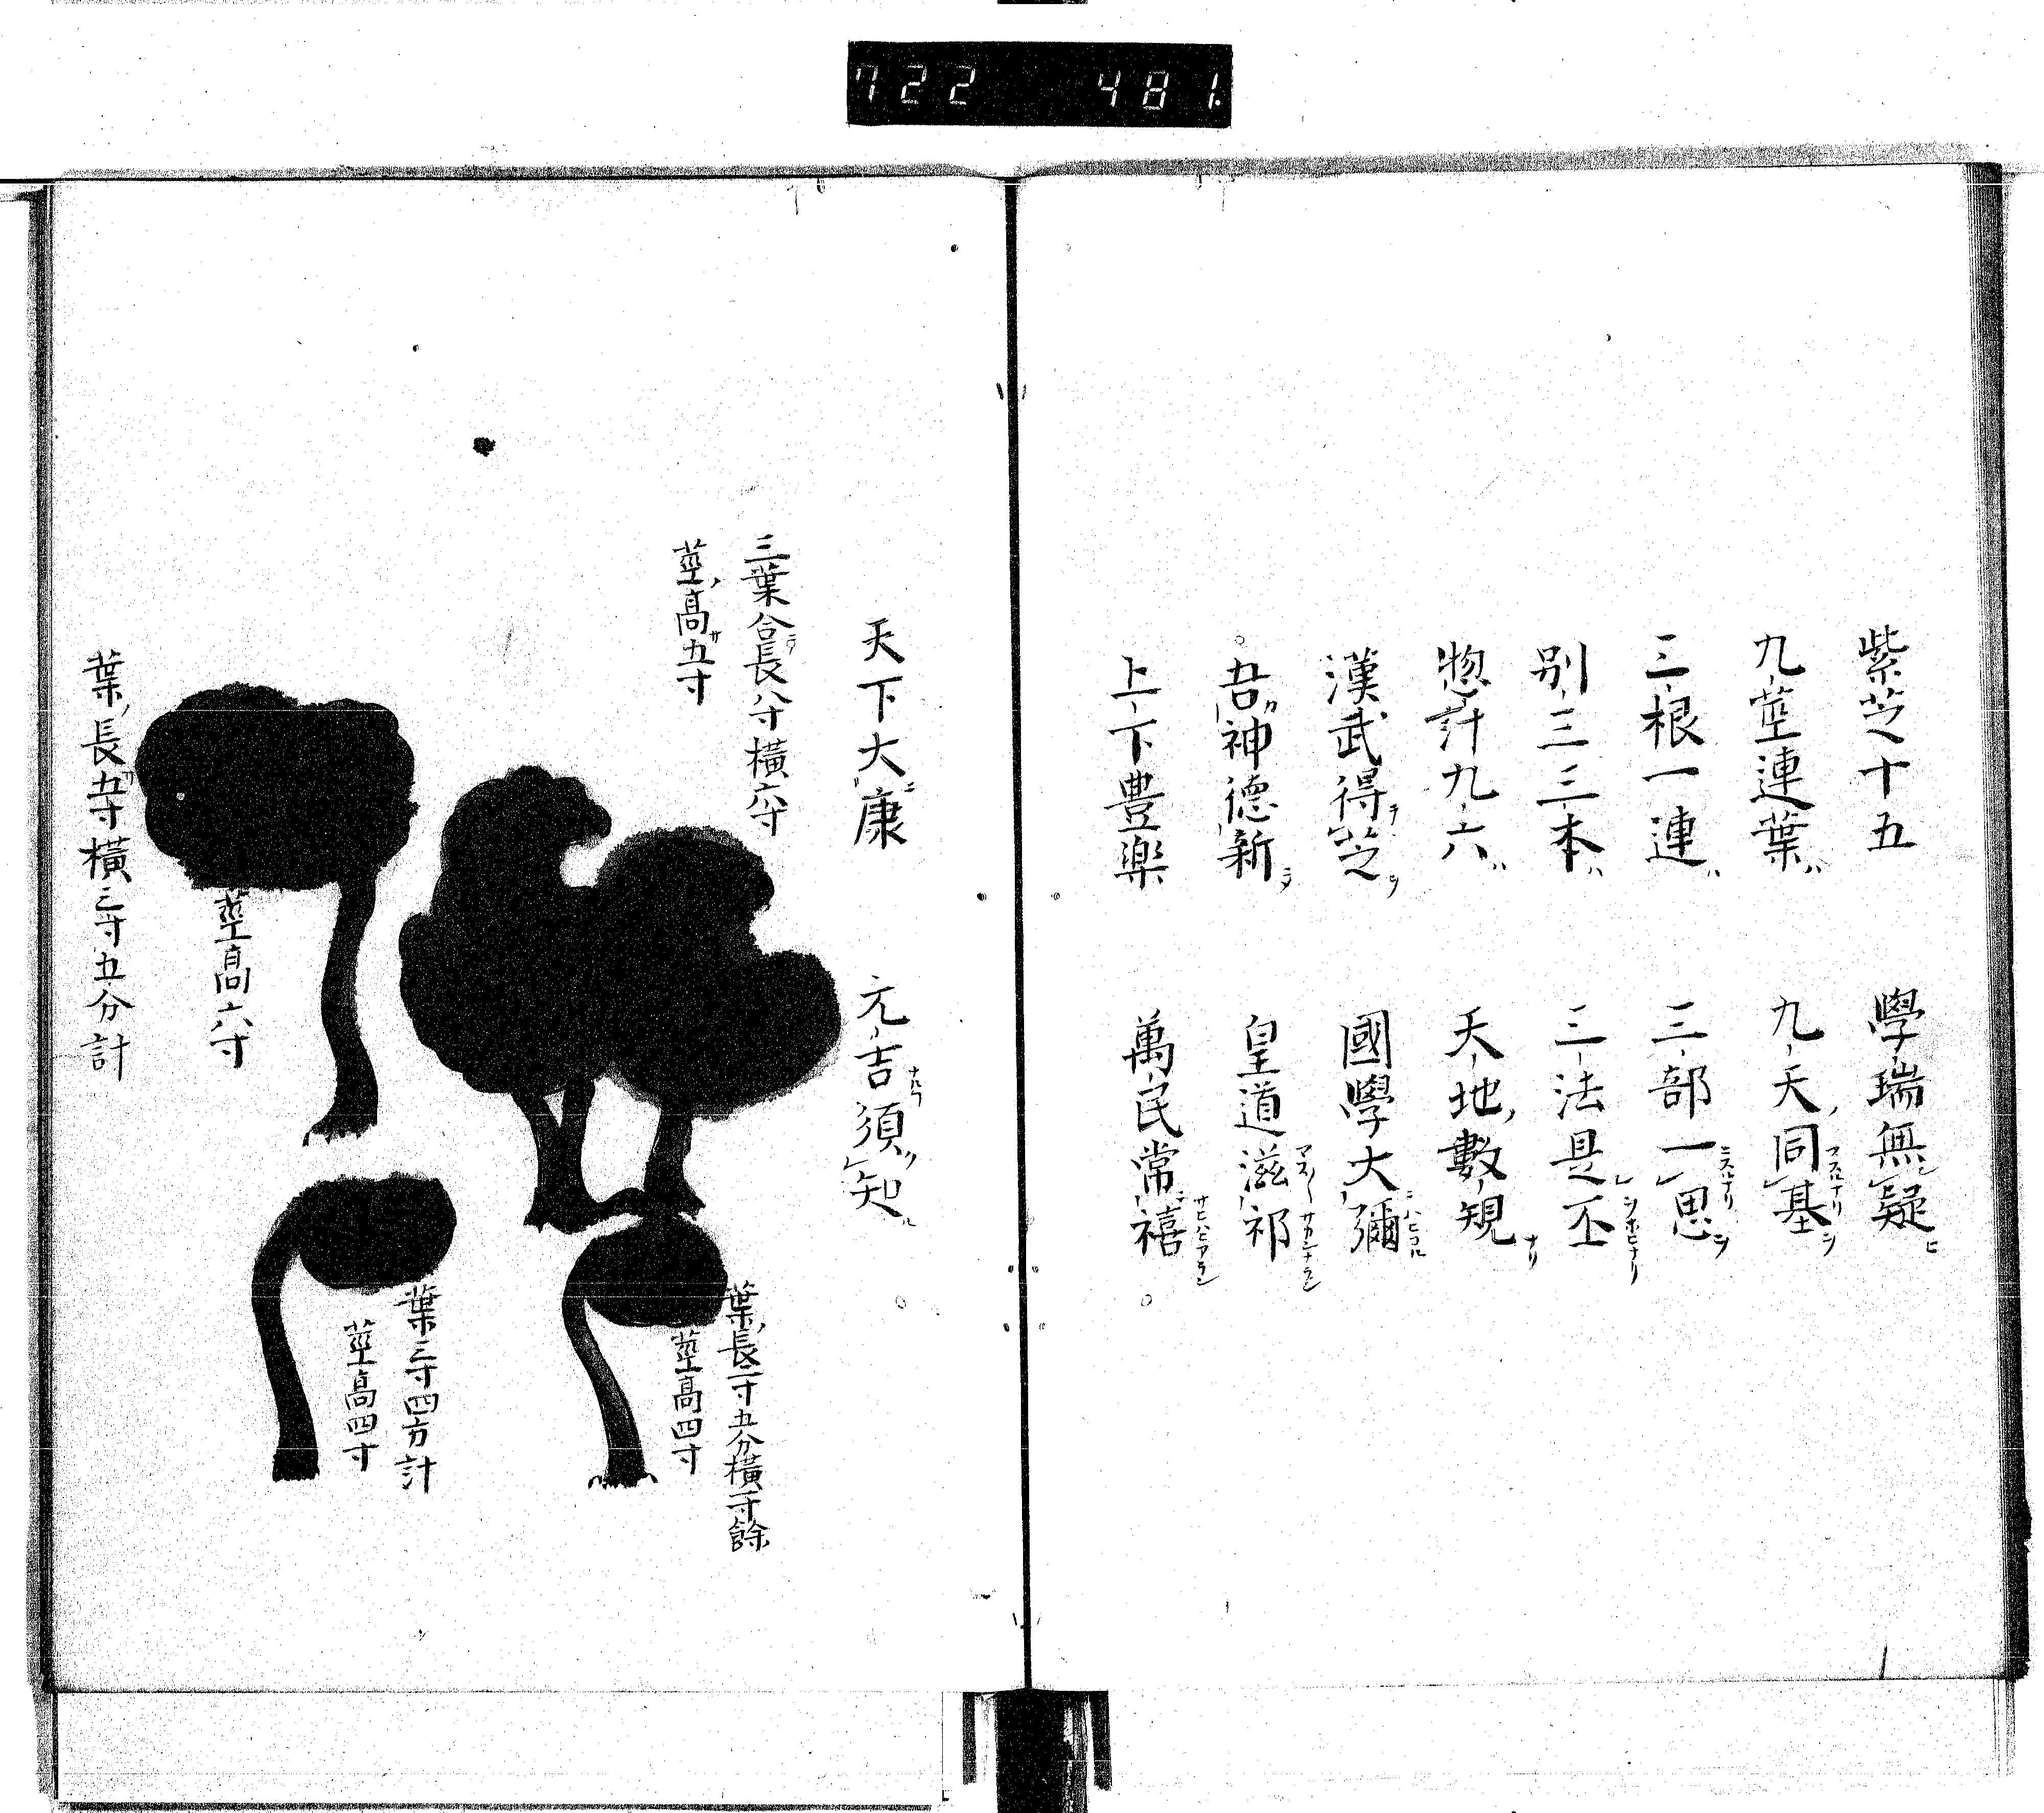 722 481.
紫芝十五 學瑞無疑
九莖連葉 九天同基
三根一連 三部一思
別三三本 三法是丕
惣計九六 天地數規
漢武得芝 國學大彌
吾神德新 皇道滋祁
上下豊樂 萬民常禧
天下大康 元吉須知
三葉合長八寸横六寸
莖ノ高サ五寸
葉ノ長二寸五分横一寸餘
莖高四寸
葉三寸四方計
莖高四寸
莖高六寸
葉ノ長サ五寸横三寸五分計